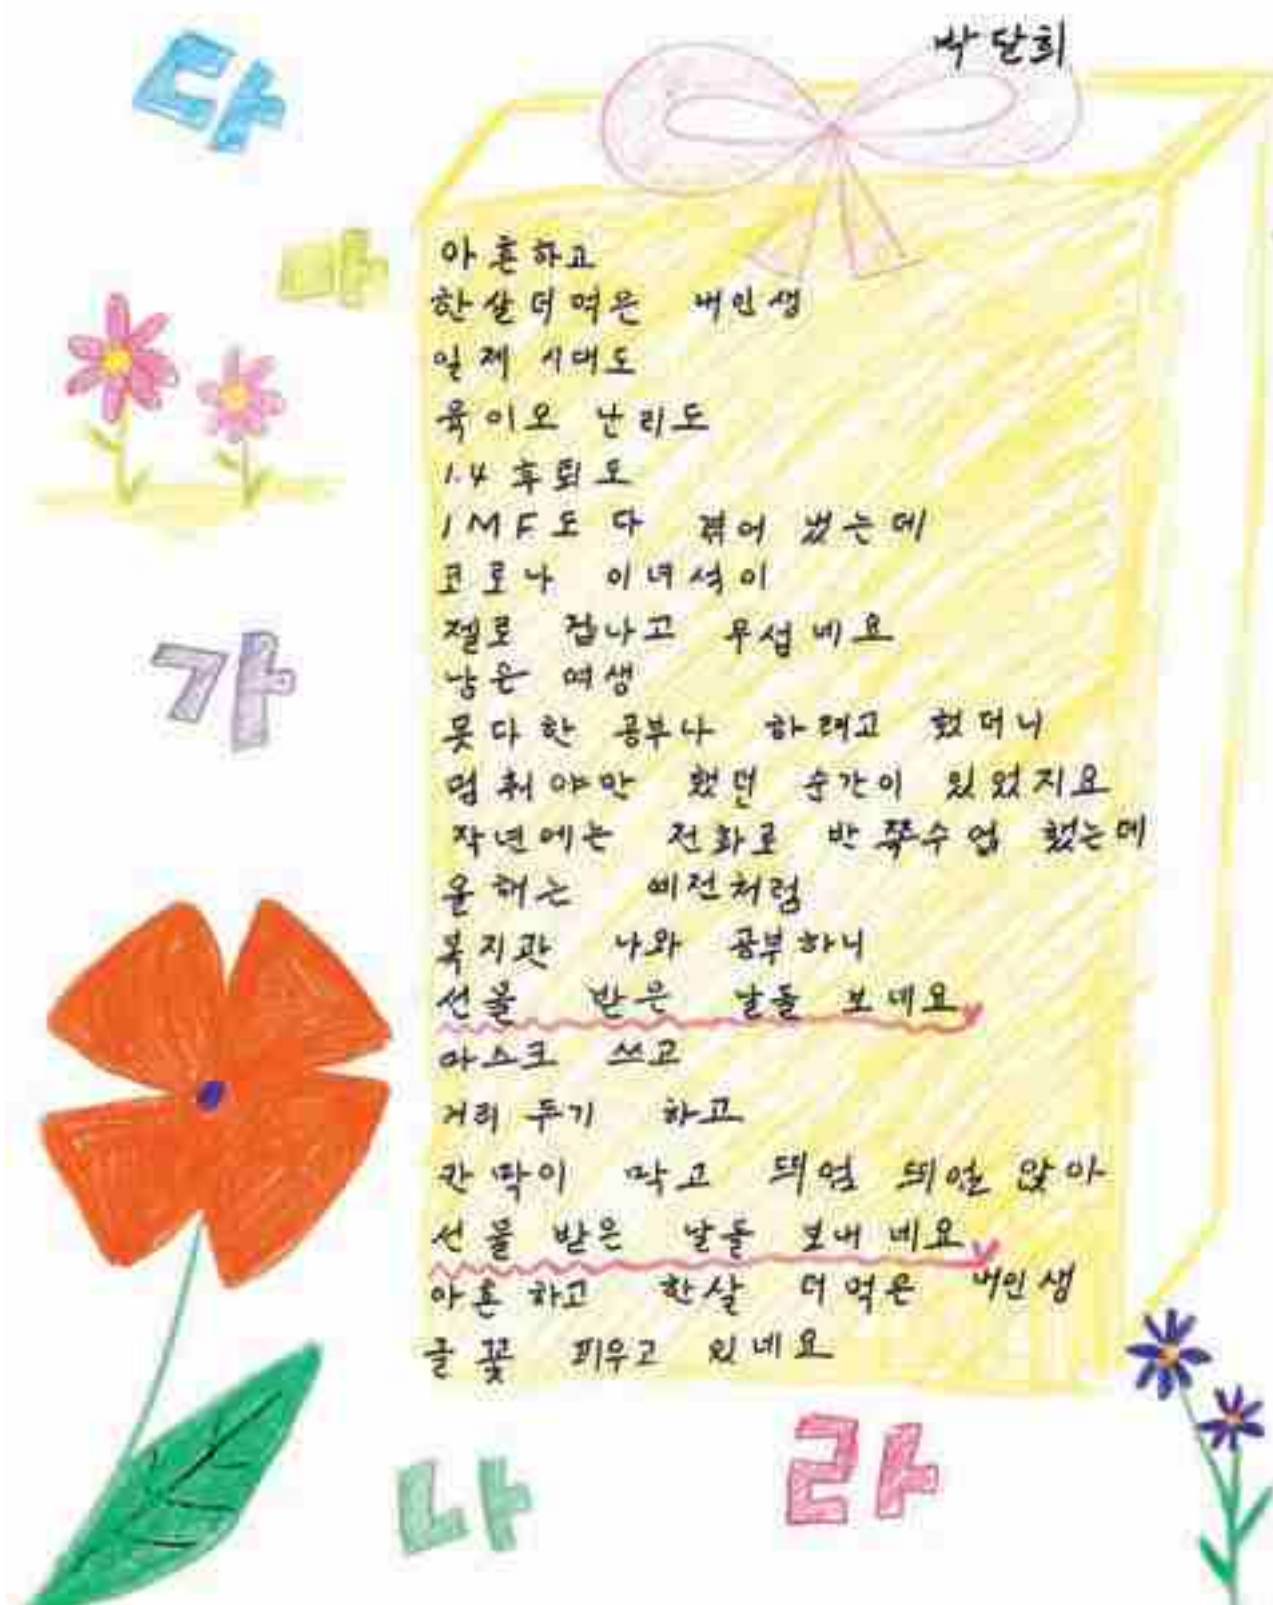 박달희
다
마
아흔하고
한살더먹은 내인생
일제 시대도
육이오 난리도
1.4 후퇴도
IMF도 다 겪어 냈는데
코로나 이녀석이
젤로 겁나고 무섭네요
남은 여생
못다한 공부나 하려고 했더니
멈춰야만 했던 순간이 있었지요
작년에는 전화로 반쪽수업 했는데
올해는 예전처럼
복지관 나와 공부하니
선물 받은 날들 보네요
마스크 쓰고
거리두기 하고
칸막이 막고 띄엄 띄엄 앉아
선물 받은 날들 보내네요
아흔하고 한살 더먹은 내인생
글꽃 피우고 있네요
가
나
라